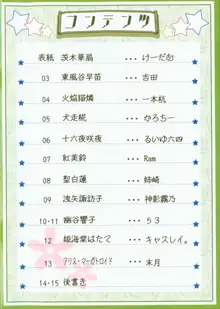 コンテンツ
表紙 茨木華扇 ・・・ けーだね
03 東風谷早苗 ・・・ 吉田
04 火焔猫燐 ・・・ 一本杭
05 犬走椛 ・・・ かろちー
06 十六夜咲夜 ・・・ るいゆ六四
07 紅美鈴 ・・・ Ram
08 聖白蓮 ・・・ 姉崎
09 洩矢諏訪子 ・・・ 神影霧乃
10-11 幽谷響子 ・・・ 53
12 姫海棠はたて ・・・ キャスレイ。
13 アリス・マーガトロイド ・・・ 末月
14-15 後書き